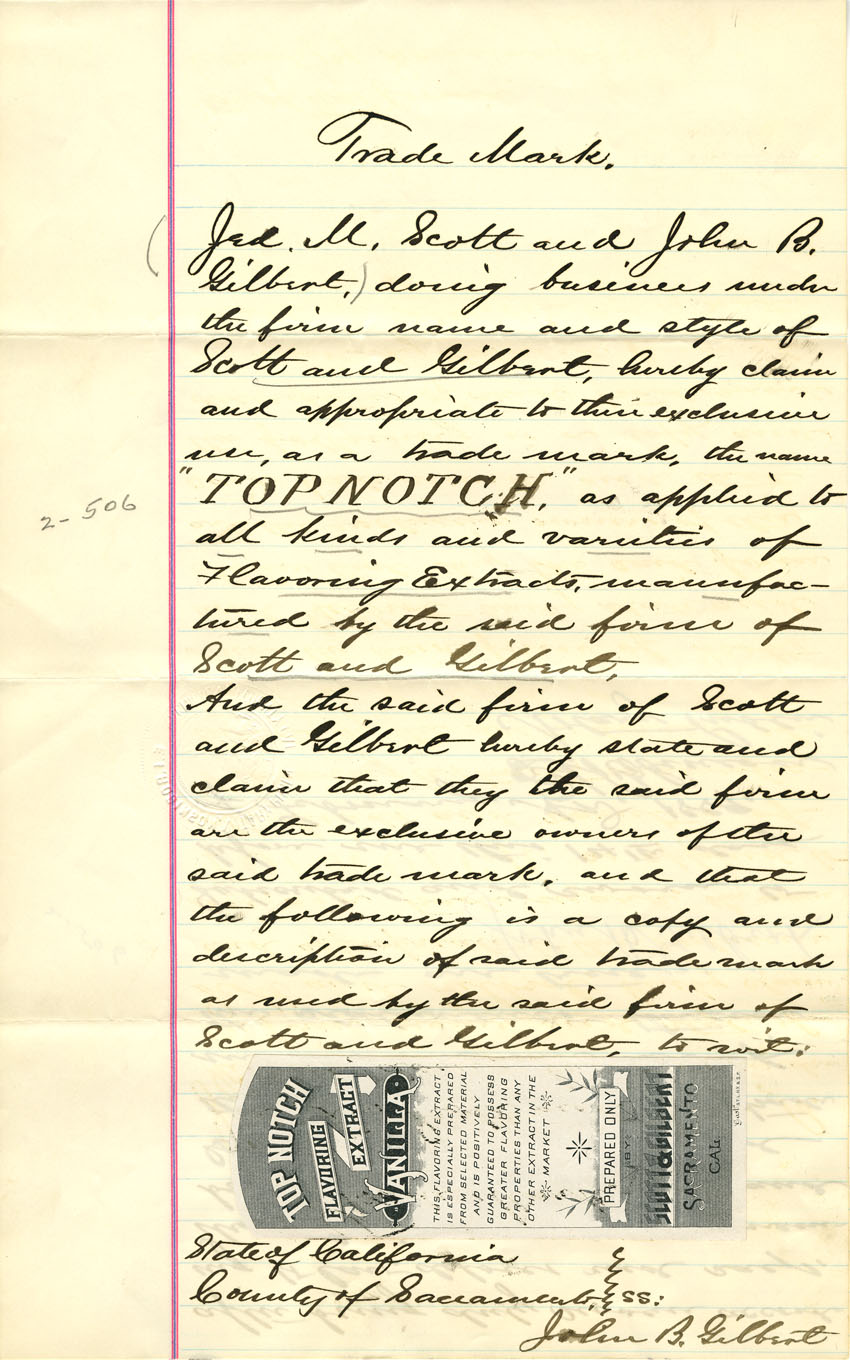 Trade Mark.
Jed. M. Scott and John B.
Gilbert,) doing business under
the firm name and style of
Scott and Gilbert, hereby claim
and appropriate to their exclusive
use, as a trade mark, the name
"TOP NOTCH," as applied to
2-506
all kinds and varieties of
Flavoring Extracts, manufac-
tured by the said firm of
Scott and Gilbert,
And the said firm of Scott
and Gilbert hereby state and
claim that they the said firm
are the exclusive owners of the
said trade mark, and that
the following is a copy and
description of said trade mark
as used by the said firm of
Scott and Gilbert, to wit:
TOP NOTCH
FLAVORING
EXTRACT
VANILLA
THIS FLAVORING EXTRACT
IS ESPECIALLY PREPARED
FROM SELECTED MATERIAL
AND IS POSITIVELY
GUARANTEED TO POSSESS
GREATER FLAVORING
PROPERTIES THAN ANY
OTHER EXTRACT IN THE
MARKET
PREPARED ONLY
BY
SCOTT & GILBERT
SACRAMENTO
CAL.
State of California
County of Sacramento, ss:
John B. Gilbert